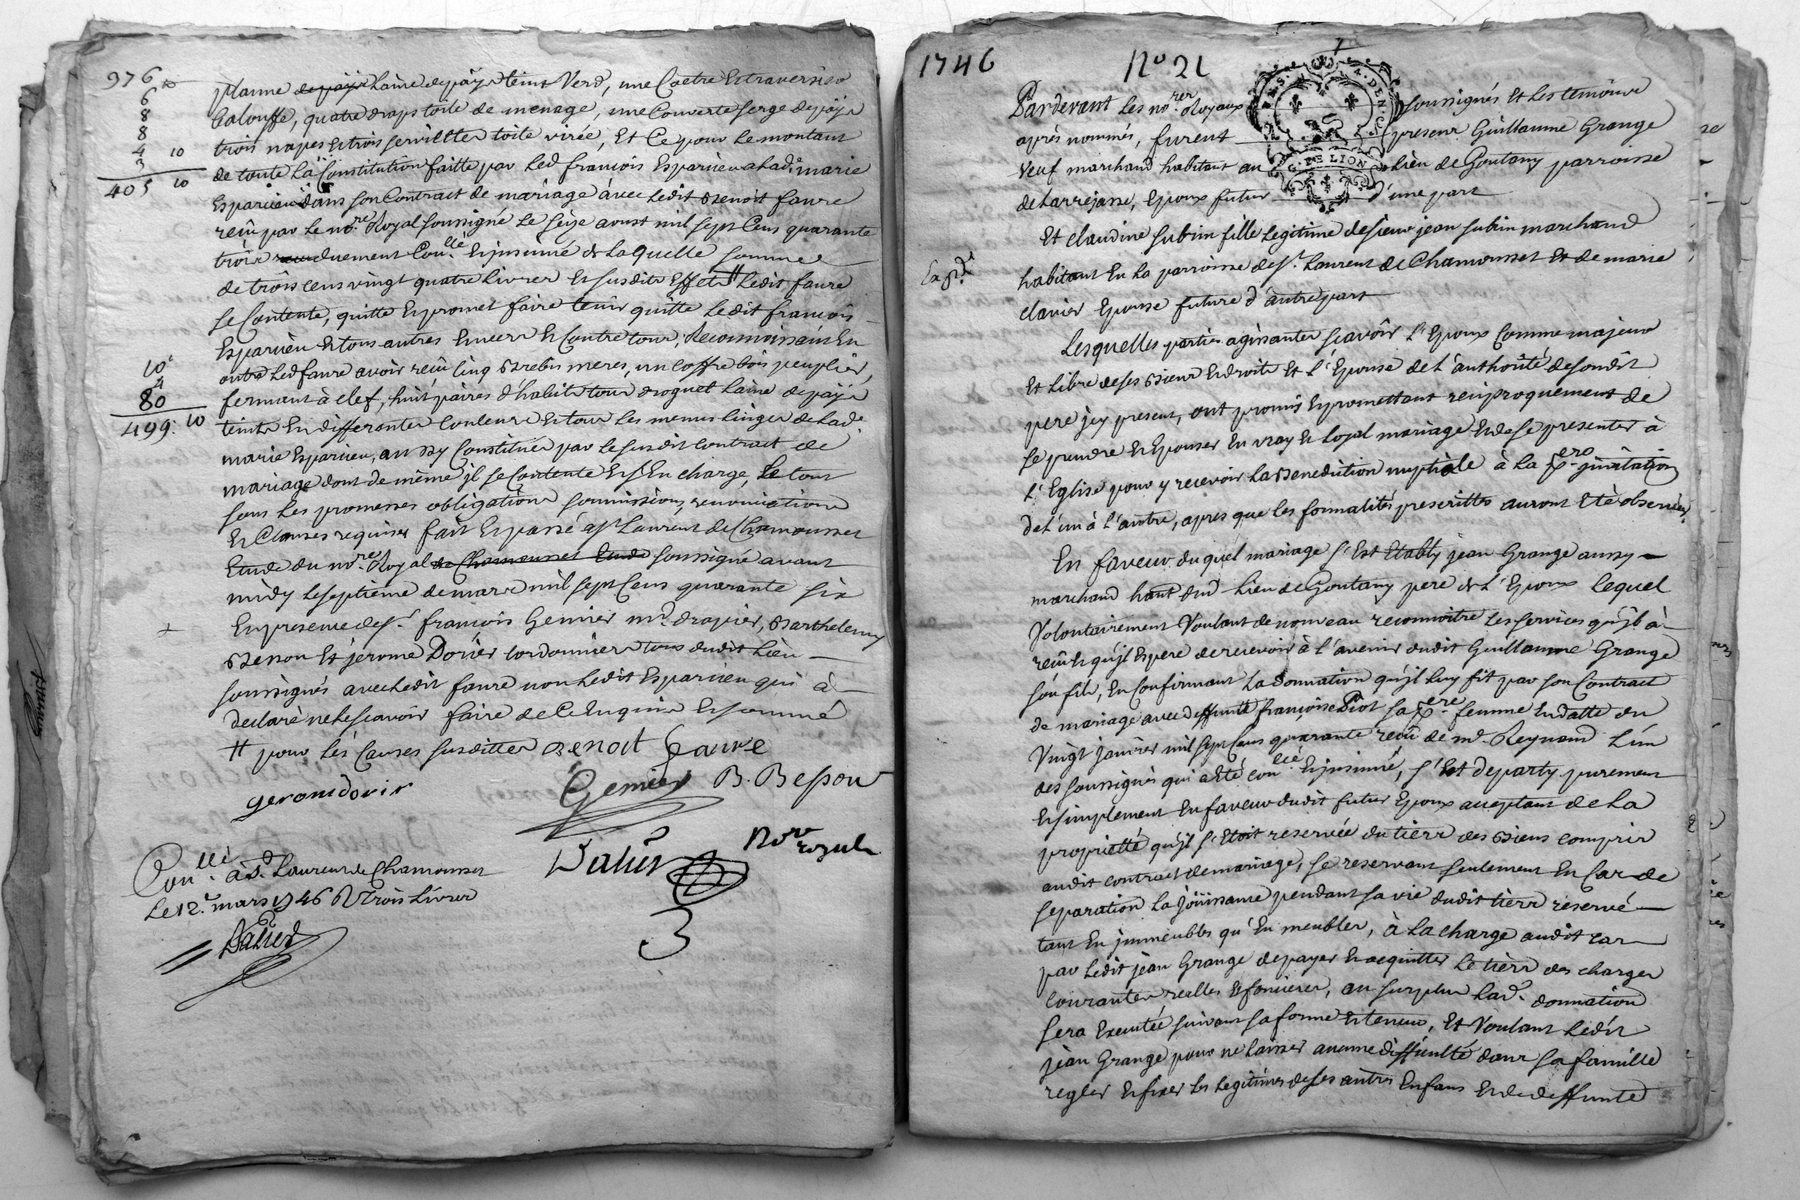 976
10
6
8
8
4 10
3
405 10
plaune de païs laine de païs teint Verd, une Coetre Et traversier
balouffe, quatre draps toile de menage, une Couverte serge de païs
trois napes et trois serviettes toile virée, Et Ce pour le montant
de toute la Constitution faitte par led françois Esparvieu a lad.e marie
Esparvieu dans son Contract de mariage avec ledit Benoit faure
reçû par le no.re Royal soussigné le seize aoust mil sept Cens quarante
trois duement Con.llé Et insinué de Laquelle somme
de trois cens vingt quatre Livres et susdits Effets # ledit faure
se Contente, quitte Et promet faire tenir quitte ledit francois
Esparvieu Et tous autres Envers Et Contre tous, Reconnoissant En
outre led faure avoir reçû Cinq Brebis meres, un coffre bois peuplier,
10
4
80
499: 10
fermant à clef, huit paires d'habits tous droguet laine de païs
teints En differentes Couleurs Et tous les menus linges de lad.e
marie Esparvieu, aussy Constitués par le susdit Contract de
mariage dont de même il se Contente Et s'En charge, le tout
sous les promesses obligations soumissions, renonciations
Et Clauses requises fait Et passé a S.t Laurent de Chamousset
Etude du no.re Royal de Chamousset Etude soussigné avant
midy le septième de mars mil sept Cens quarante six
En presence de s.r françois Gemier m.d drapier, Barthelemy
Besson Et jerome Dorier Cordonnier tous dudit lieu
soussignés avec ledit faure non ledit Esparvieu qui à
declaré ne le sçavoir faire de Ce Enquis Et sommé
# pour les Causes susdittes Benoit faure
Gemier B. Besson
gerom dorir
no.re royal
Con.llé à S.t Laurent de Chamousset
Le 12.e mars 1746 R Trois Livres
3
1746 No 21
G. DE LION
Pardevant Les no.res Royaux soussignés Et les temoins
après nommés, furent present Guillaume Grange
Veuf marchand habitant au lieu de Goutany parroisse
de Larrajasse, Epoux futur d'une part
Et claudine subrin fille legitime de sieur jean subrin marchand
habitant En la parroisse de S.t Laurent de Chamousset Et de marie
clavier Epouse future d'autre part
Lesquelles parties agissantes sçavoir l'Epoux Comme majeur
Et libre de ses Biens Et droits Et l'Epouse de l'authorité de sondit
pere jcy present, ont promis Et promettent reciproquement de
se prendre Et Epouser En vray Et loyal mariage Et de se presenter à
l'Eglise pour y recevoir la Benediction nuptiale à la p.ere jnvitation
de l'un à l'autre, apres que les formalités prescrittes auront Eté observées,
En faveur duquel mariage s'Est Etably jean Grange aussy
marchand hant dud lieu de Goutany pere de l'Epoux Lequel
Volontairement Voulant de nouveau reconnoitre les services qu'il à
reçû Et qu'il Espere de recevoir à l'avenir dudit Guillaume Grange
son fils, En Confirmant la Donnation qu'jl luy fit par son Contract
de mariage avec deffunte françoise Piot sa p.ere femme En datte du
Vingt janvier mil sept Cens quarante reçû de m.e Reynaud l'un
des soussignés qui a Eté con.llé Et jnsinué, s'Est departy purement
Et simplement En faveur dudit futur Epoux acceptant de la
proprieté qu'jl s'Etoit reservée du tiers des Biens compris
audit contract de mariage, se reservant seulement En Cas de
separation la joüissance pendant sa vie dudit tiers reservé
tant En jmmeubles qu'En meubles, à la charge audit cas
par ledit jean Grange de payer Et acquitter le tiers des charges
courantes reelles Et foncieres, au surplus lad.e donnation
sera Executée suivant sa forme Et teneur, Et Voulant ledit
jean Grange pour ne laisser aucune difficulté dans sa famille
regler Et fixer les legitimes de ses autres Enfans Et de deffunte